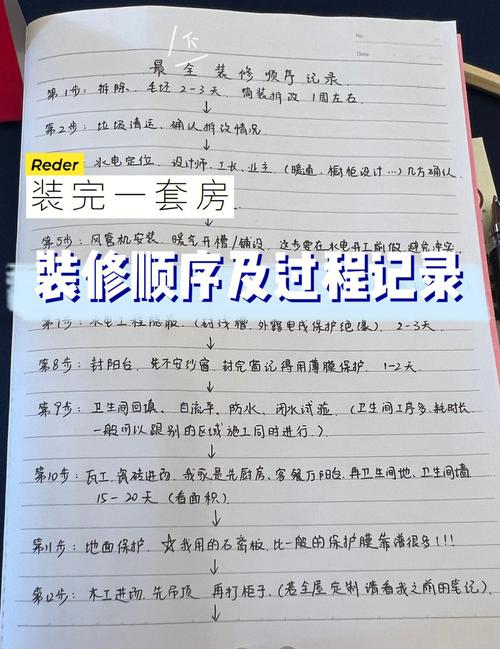 1/不
No.
Date
最全装修顺序记录
第1步：拆除、毛坯2-3天 简装拆改 1周左右
第2步：垃圾清运、确认拆改情况
Reder
水电定位、设计师、工长、业主（暖通、橱柜设计…）几方确认
装完一套房
第5步：风管机安装、暖气开槽/铺设、这步要在水电开工前做，避免冲突
装修顺序及过程记录
第7步：水电工程隐蔽。（封线槽、外露电线保护绝缘）2-3天.
第8步：封阳台、先不安纱窗、封完窗记得用薄膜保护. 1-2天
第9步：卫生间回填、自流平、防水、闭水试验.（卫生间工序多,耗时长、
一般可以跟别的区域施工同时进行.）
第10步：瓦工、瓷砖进场、我家是先厨房、客餐厅阳台、再卫生间地、卫生间墙
15-20天（看面积）
第11步：地面保护、☆我用的石膏板、比一般的保护膜靠谱很多!!!
第12步：木工进场、先吊顶 再打柜子、（若全屋定制 请看我之前的笔记）.